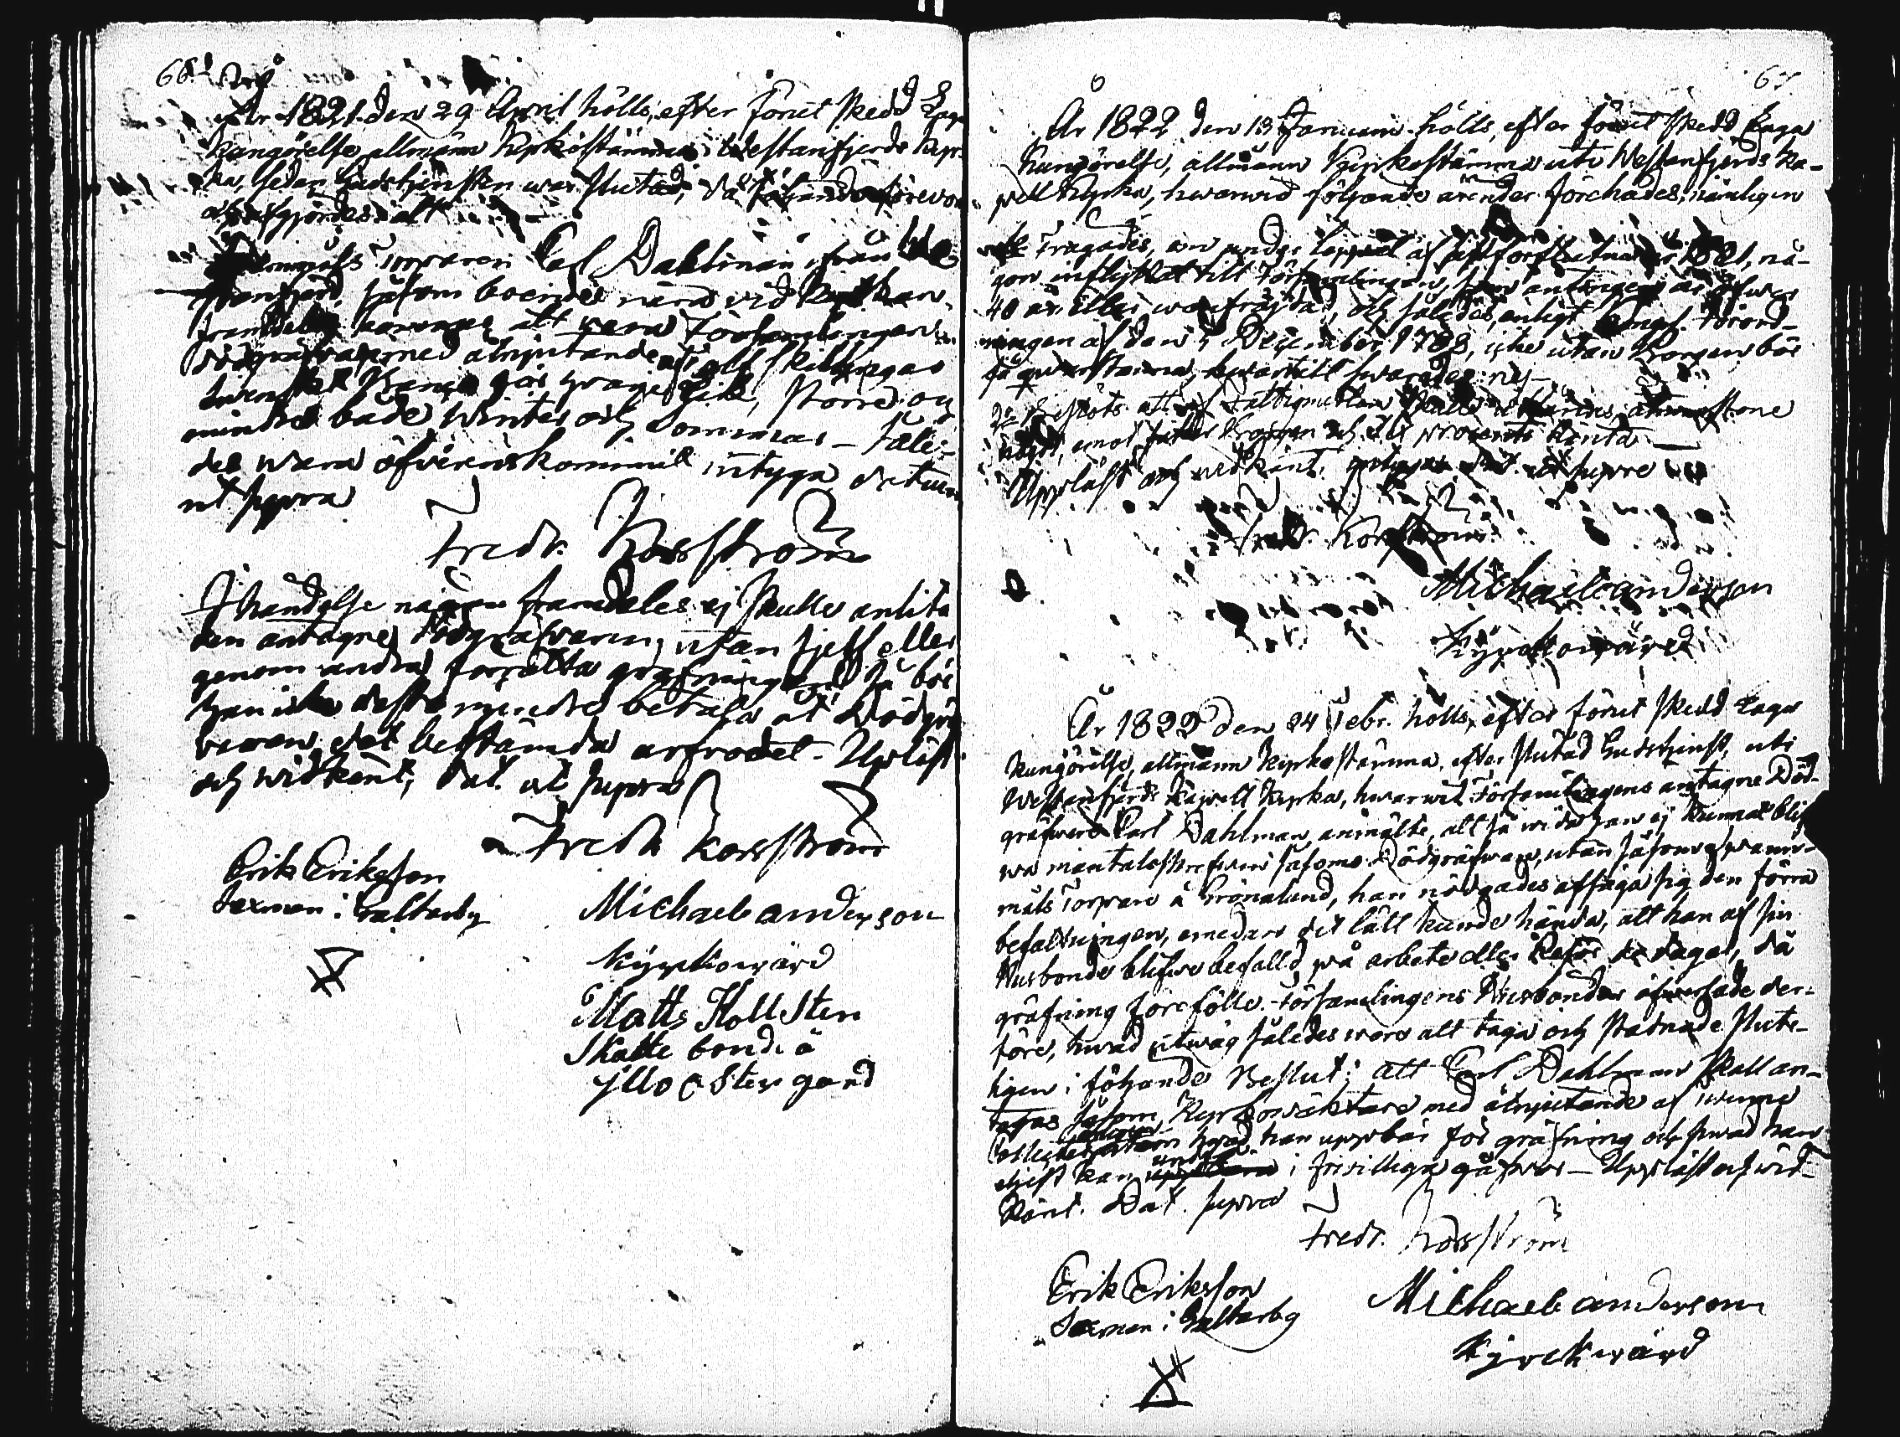 66.
År 1821 den 29 April hölls, efter förut skedd Laga
kungörelse, allmänn Kyrkostämma i Westanfjerds Kyr-
ka, sedan Gudstjensten war slutad, då följande förevar
och afgjordes: att
Torparen Carl Dahlman ifrån
såsom boende närmare wid Kyrkan,
framdeles kommer att wara Församlingens
dödgräfware med åtnjutande af tolf skillingar
Swenskt Banco för hvarje Lik, större och
mindre både Winter och Sommar – Såle-
des wara öfverenskommit intyga datum
ut supra
Fredr. Korsström
I händelse någon framdeles ej skulle anlita
den antagne Dödgräfwaren, utan sjelf eller
genom andra förrätta gräfningen så bör
han icke desto mindre betala åt Dödgrä
waren det bestämda arfvodet. Upläst
och widkent, Dat. ut supra
Fredr Korsström
Erik Eriksson
Sexman i Galtarby
Michael anderson
Kyrkowärd
Matts Kollsten
Skatte bonde å
yllo Ster gard
67
År 1822 den 13 Januari hölls, efter förut skedd Laga
kungörelse, allmänn Kyrkostämma uti Westanfjerds Ka-
pell Kyrka, hwarwid följande ärender förehades, nämligen
Fragades, om under loppet af sistförflutna år 1821, nå-
gon inflyttat till Församlingen, som antingen är öfwer
40 år eller wanfrejdad, och således, enligt Kongl. Förord-
ningen af den 5 December 1788, icke utan Borgen bör
få qwarstanna, hwartill swarades nej.
2o Beslöts att
emot Borgen och sex procents Ränta
Uppläst och widkänt, intygar Dat. ut supra
Fredr. Korsström
Michael anderson
Kyrkowärd
År 1822 den 24 Febr. hölls, efter förut skedd Laga
kungörelse, allmänn Kyrkostämma, efter slutad Gudstjenst, uti
Westanfjerds Kapell Kyrka, hwarwid Församlingens antagne Död-
gräfware Carl Dahlman anmälte, att då widare han ej kunnat blif
wa mantalsskrefwen såsom Dödgräfware, utan såsom
måls Torpare å Grönalund, han nödgades affsäga sig den förra
befattningen, emedan det lätt kunde hända, att han af sin
Husbonde blefwe befalld på arbete eller Resor de dagar, då
gräfning förefölle. Församlingens Husbönder öfwerlade der-
före, hwad utwäg således wore att taga och stadnade slute-
ligen i följande Beslut: att Carl Dahlman skall an-
tagas såsom Kyrkowäktare med åtnjutande af
hwad han uppbär för gräfning och hwad han
eljest kan undfå i friwilliga gåfwor – Uppläst och wid-
känt. Dat. supra
Fredr. Korsström
Erik Eriksson
Sexman i Galtarby
Michael anderson
Kyrckwärd